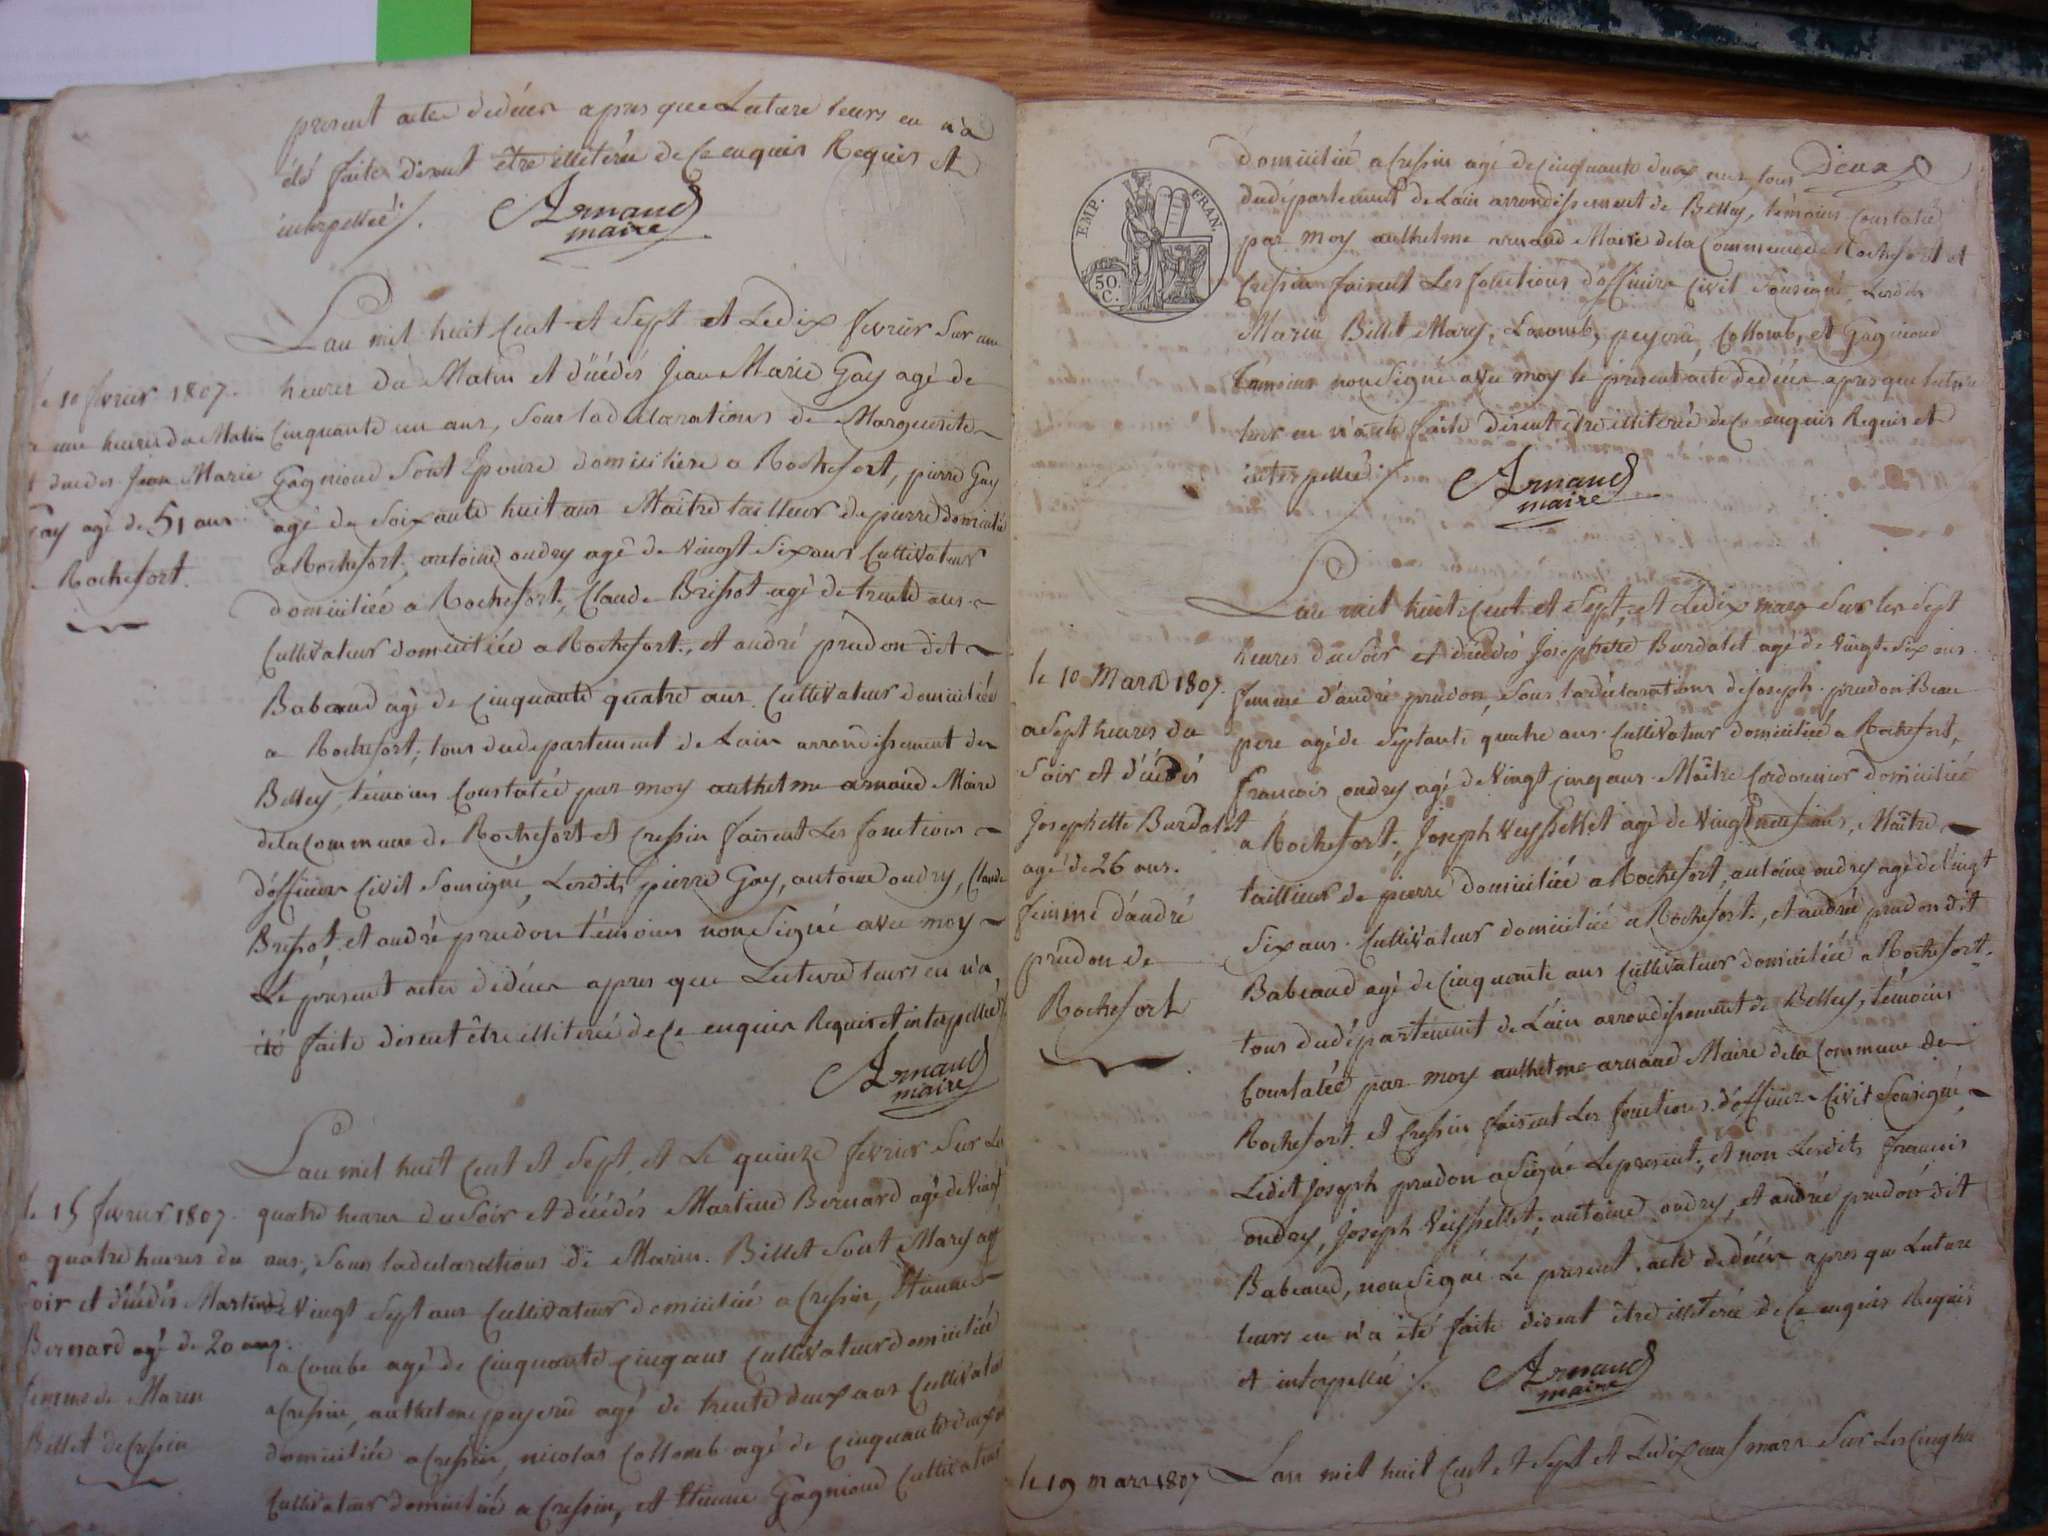 present acte dedécer apres que Lecture leurs en n'a
été faite disent être illiteréé de Ce enquis Requis et
interpelleé /.
Arnaud
maire
Lan mil huit Cent et Sept et Ledix fevrier Sur une
heures du Matin et décédés Jean Marie Gay agé de
Cinquante un ans, Sous la déclarations de Marguerite
Gagnioud Sont Epouse domiciliere a Rochefort, pierre Gay
agé de Soixante huit ans Maitre tailleur de pierre domicilié
a Rochefort, antoine oudry agé de vingt Six ans Cultivateur
domiciliée a Rochefort, Claude Brissot agé de trente ans
Cultivateur domiciliée a Rochefort, et andré prudon dit
Babeaud agé de Cinquante quatre ans Cultivateur domiciliée
a Rochefort, tous du departement de Lain arrondissement de
Belley, témoins Constatée par moy anthelme arnaud Maire
dela Commune de Rochefort et Cressin faisent Les fonctions
dofficier Civil Sousigné, Lesdits pierre Gay, antoine oudry, Claude
Brissot, et andré prudon témoins non Signé avec moy
Le présent acte dedécer apres que Lecture leurs en n'a
été faite disent être illiterée de Ce enquis Requis et interpelleé /.
Arnaud
maire
le 10 fevrier 1807.
a une heures du Matin
et décédés Jean Marie
Gay agé de 51 ans
Rochefort.
Lan mil huit Cent et Sept, et Le quinze fevrier Sur Les
quatre heures du Soir et décédés Martine Bernard agé de vingt
ans, Sous la déclarations de Marin Billet Sont Mary agé
de vingt Sept ans Cultivateur domiciliée a Cressin, Etienne
la Combe agé de Cinquante Cinq ans Cultivateur domiciliée
a Cressin, anthelme peysson agé de trente deux ans Cultivateur
domiciliée a Cressin, nicolas Collomb agé de Cinquante deux ans
Cultivateur domiciliée a Cressin, et Etienne Gagnioud Cultivateur
le 15 fevrier 1807.
a quatre heures du
Soir et décédés Martine
Bernard agé de 20 ans.
femme de Marin
Billet de Cressin
Deux
domiciliée a Cressin agé de Cinquante deux ans tous
du département de Lain arrondissement de Belley, témoins Constatée
par moy anthelme arnaud Maire dela Commune de Rochefort et
Cressin faisent Les fonctions dofficier Civil Sousigné, Lesdits
Marin Billet Mary, Lacomb, Collomb, et Gagnioud
temoins non Signé avec moy le présent acte dedécer apres que lecture
leur en n'a été faite disent être illiterée de Ce enquis Requis et
interpelleé /.
Arnaud
maire
EMP. FRAN.
50 C.
Lan mil huit Cent et Sept, et Ledix mars Sur les Sept
heures du Soir et décédés Josephette Burdalet agé de vingt Six ans
femme d'andré prudon, Sous la déclarations de Joseph prudon Beau
pere agé de Septante quatre ans Cultivateur domiciliée a Rochefort,
francois oudry agé de Vingt Cinq ans Maître Cordonnier domiciliée
a Rochefort, Joseph Veyssellet agé de Vingt neuf ans, Maître
tailleur de pierre domiciliée a Rochefort, antoine oudry agé de Vingt
Six ans Cultivateur domiciliée a Rochefort, et andrée prudon dit
Babeaud agé de Cinquante ans Cultivateur domiciliée a Rochefort.
tous du département de Lain arrondissement de Belley, témoins
Constatée par moy anthelme arnaud Maire dela Commune de
Rochefort et Cressin faisent Les fonctions d'officier Civil Sousigné
Ledit Joseph prudon a Signé Le present, et non Lesdits francois
oudry, Joseph Veissellet, antoine oudry, et andrée prudon dit
Babeaud, non Signé Le present acte dedécer apres que Lecture
leurs en n'a été faite disent être illiterée de Ce enquis Requis
et interpellée /.
Arnaud
maire
le 10 Mars 1807.
a Sept heures du
Soir et décédés
Josephette Burdalet
agé de 26 ans.
femme d'andré
prudon de
Rochefort
Lan mil huit Cent et Sept et Ledix neuf mars Sur Les Cinq heu
le 19 mars 1807